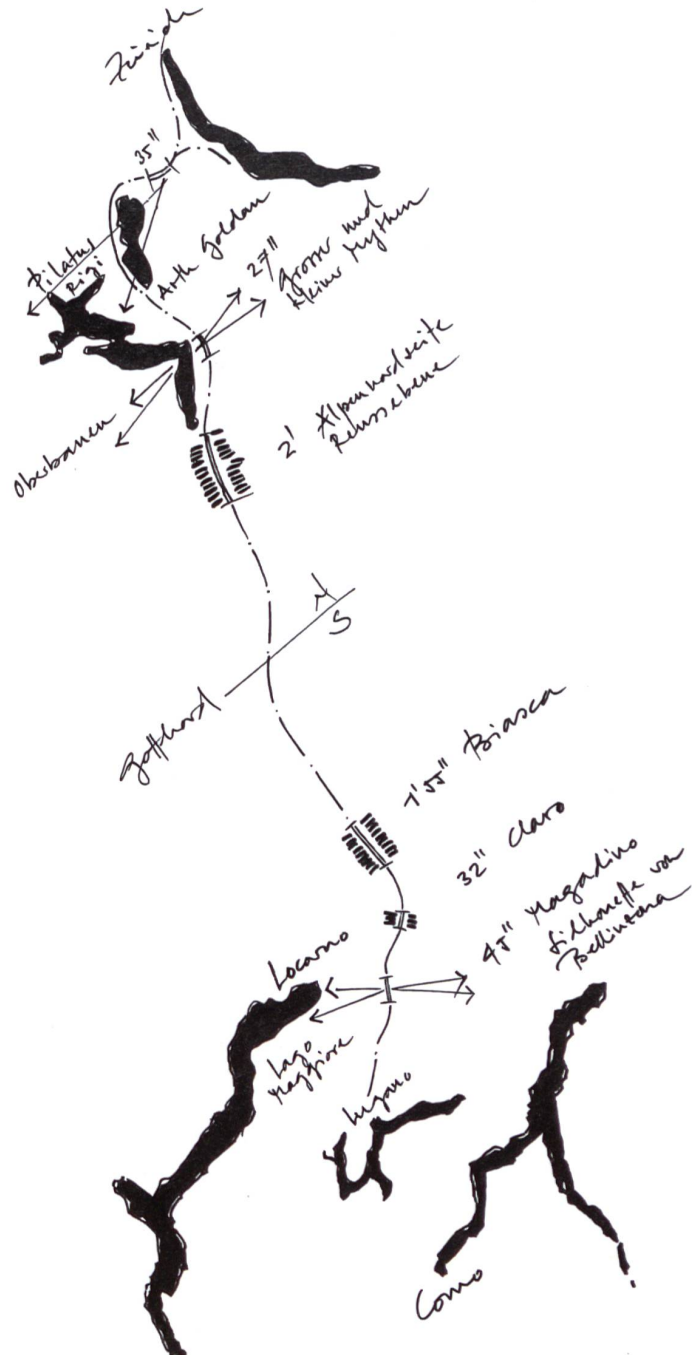 Zürich
35"
Pilatus
Rigi
Arth Goldau
27"
Grosser und
kleiner Mythen
Oberbauen
2' Alpennordseite
Reussebene
N
S
Gotthard
1'55" Biasca
32" Claro
45" Magadino
Silhouette von
Bellinzona
Locarno
Lago
Maggiore
Lugano
Como